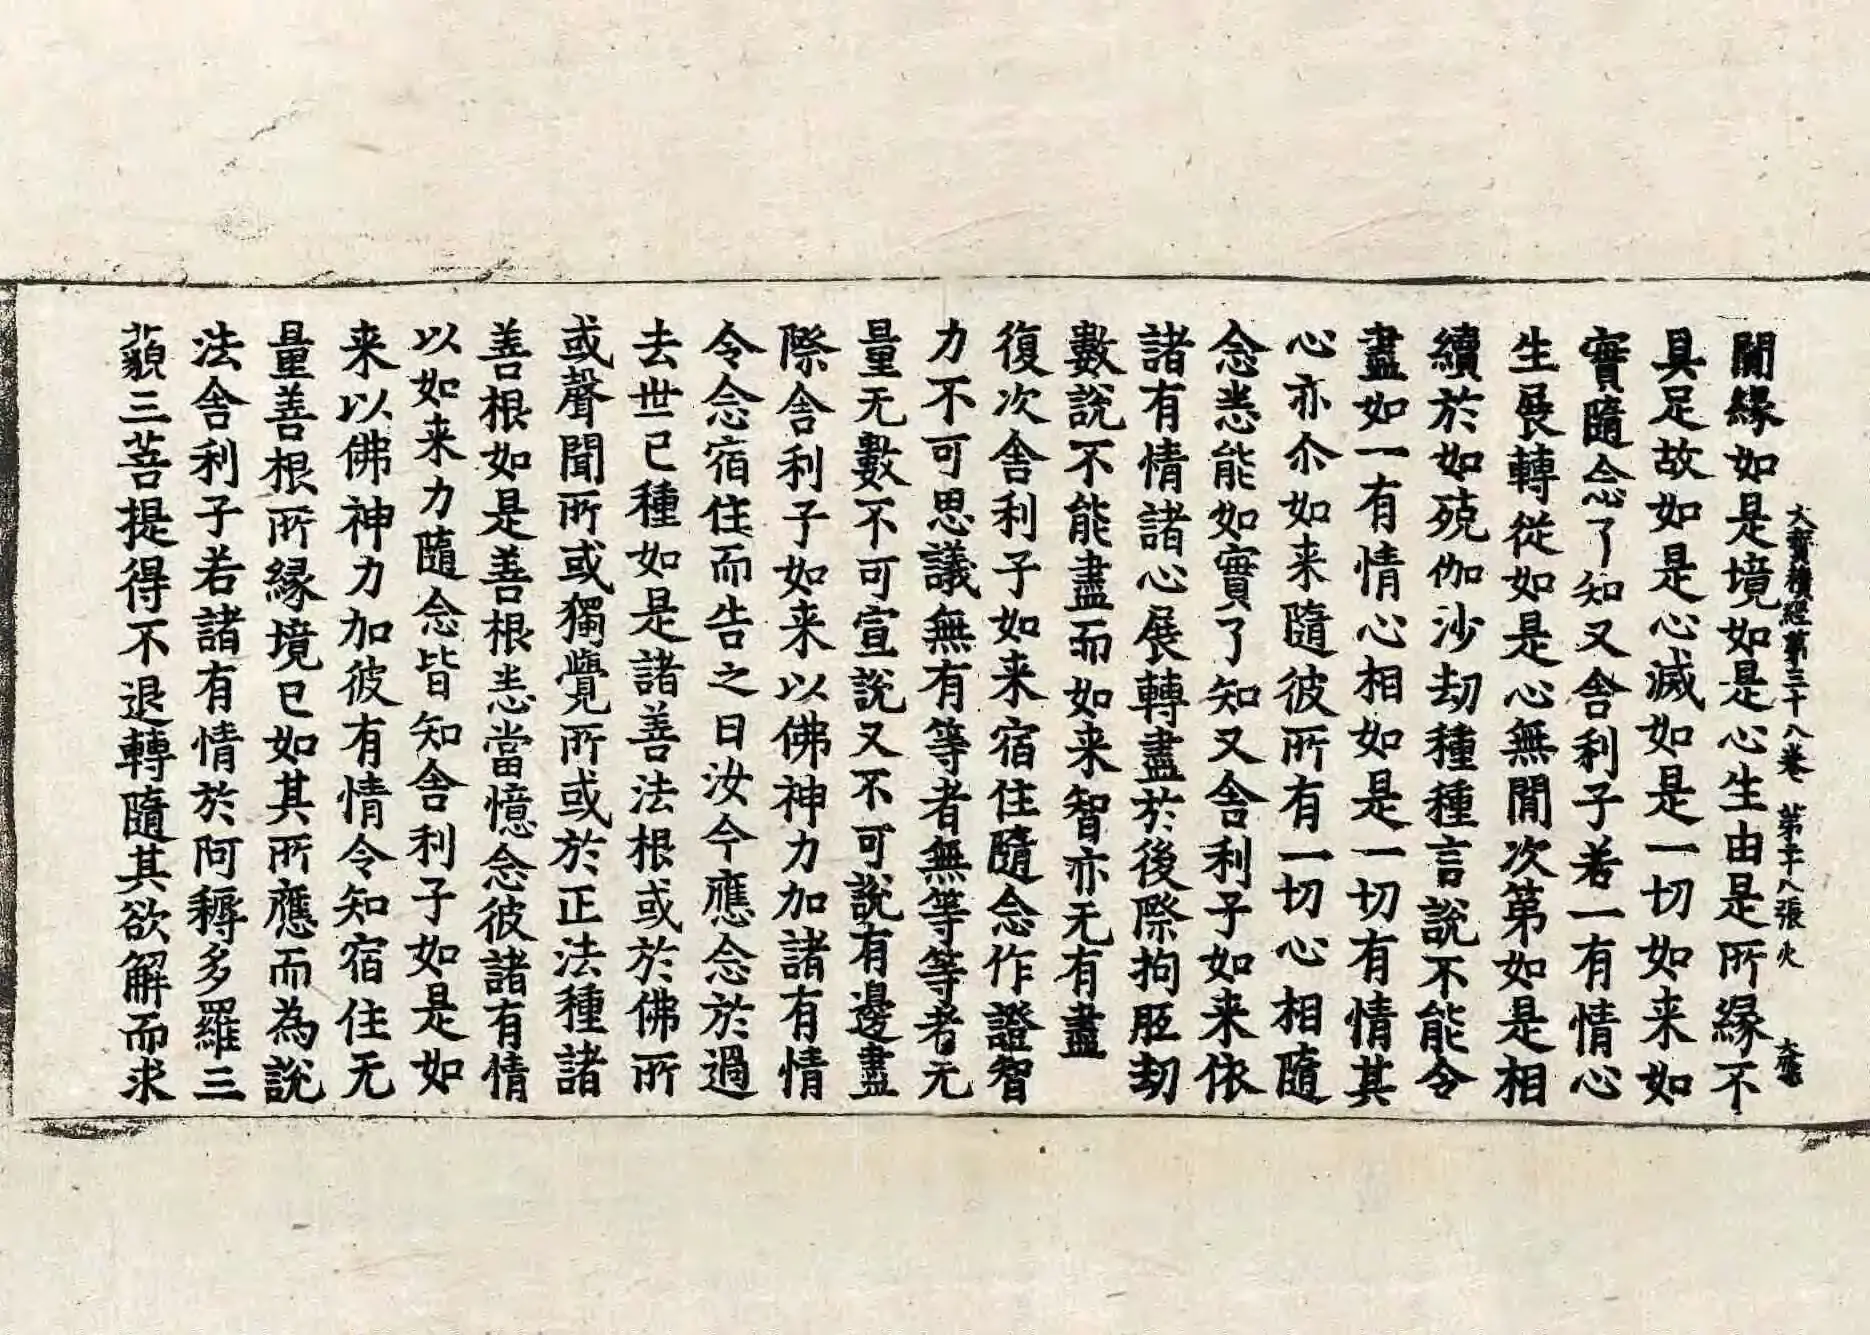 大寶積經第三十八卷 第十八張 火
間緣如是境如是心生由是所緣不
具足故如是心滅如是一切如来如
實隨念了知又舎利子若一有情心
生展轉從如是心無間次第如是相
續於如殑伽沙劫種種言說不能令
盡如一有情心相如是一切有情其
心亦尒如来隨彼所有一切心相隨
念悉能如實了知又舎利子如来依
諸有情諸心展轉盡於後際拘胝劫
數說不能盡而如来智亦无有盡
復次舎利子如来宿住隨念作證智
力不可思議無有等者無等等者无
量无數不可宣說又不可說有邊盡
際舎利子如来以佛神力加諸有情
令念宿住而告之曰汝今應念於過
去世已種如是諸善法根或於佛所
或聲聞所或獨覺所或於正法種諸
善根如是善根悉當憶念彼諸有情
以如来力隨念皆知舎利子如是如
来以佛神力加彼有情令知宿住无
量善根所緣境已如其所應而為說
法舎利子若諸有情於阿耨多羅三
藐三菩提得不退轉隨其欲解而求